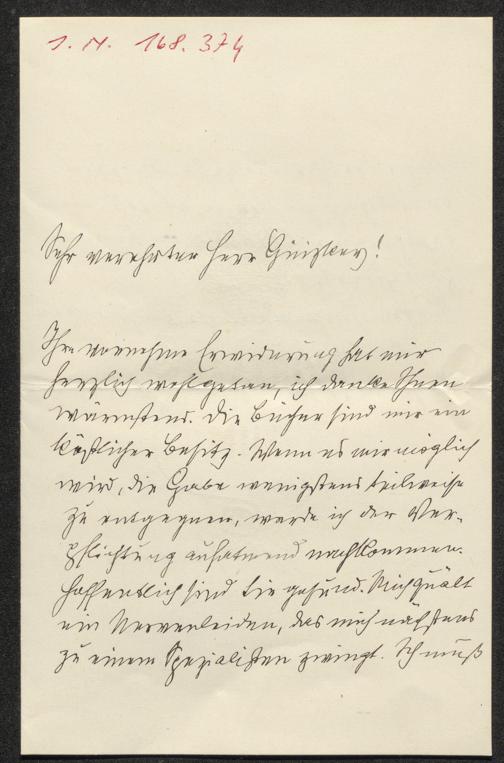 J. N. 168.374
Sehr verehrter Herr
Ihre vornehme Erwiderung hat mir
herzlich wohlgetan, ich danke Ihnen
wärmstens. Die Bücher sind mir ein
köstlicher Besitz. Wenn es mir möglich
wird, die Gabe wenigstens teilweise
zu entgegnen, werde ich der Ver-
pflichtung aufatmend nachkommen.
Hoffentlich sind Sie gesund. Mich quält
ein Nervenleiden, das mich nächstens
zu einem Spezialisten zwingt. Ich muß